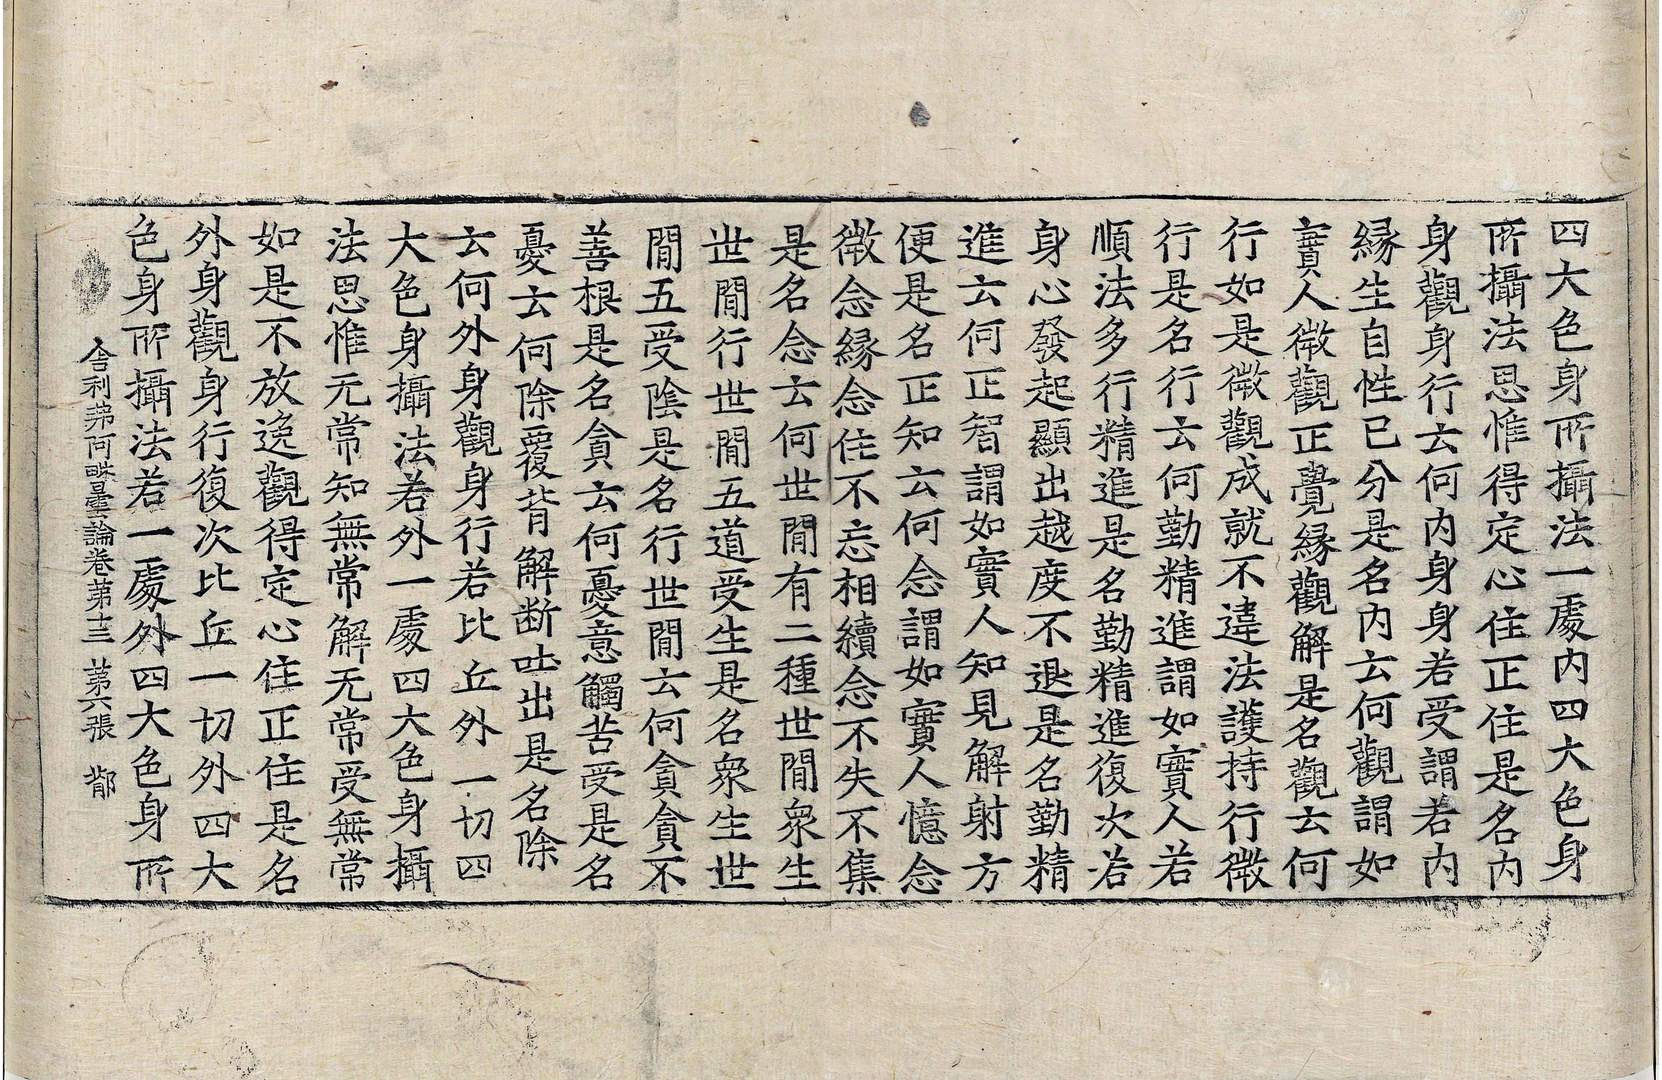 四大色身所攝法一處内四大色身
所攝法思惟得定心住正住是名内
身觀身行云何内身身若受謂若内
緣生自性已分是名内云何觀謂如
實人微觀正覺緣觀解是名觀云何
行如是微觀成就不違法護持行微
行是名行云何勤精進謂如實人若
順法多行精進是名勤精進復次若
身心發起顯出越度不退是名勤精
進云何正智謂如實人知見解射方
便是名正知云何念謂如實人憶念
微念緣念住不忘相續念不失不集
是名念云何世閒有二種世閒衆生
世閒行世閒五道受生是名衆生世
閒五受陰是名行世閒云何貪貪不
善根是名貪云何憂意觸苦受是名
憂云何除覆背解断吐出是名除
云何外身觀身行若比丘外一切四
大色身攝法若外一處四大色身攝
法思惟无常知無常解无常受無常
如是不放逸觀得定心住正住是名
外身觀身行復次比丘一切外四大
色身所攝法若一處外四大色身所
舍利弗阿毗曇論卷第十三 第六張 鬱